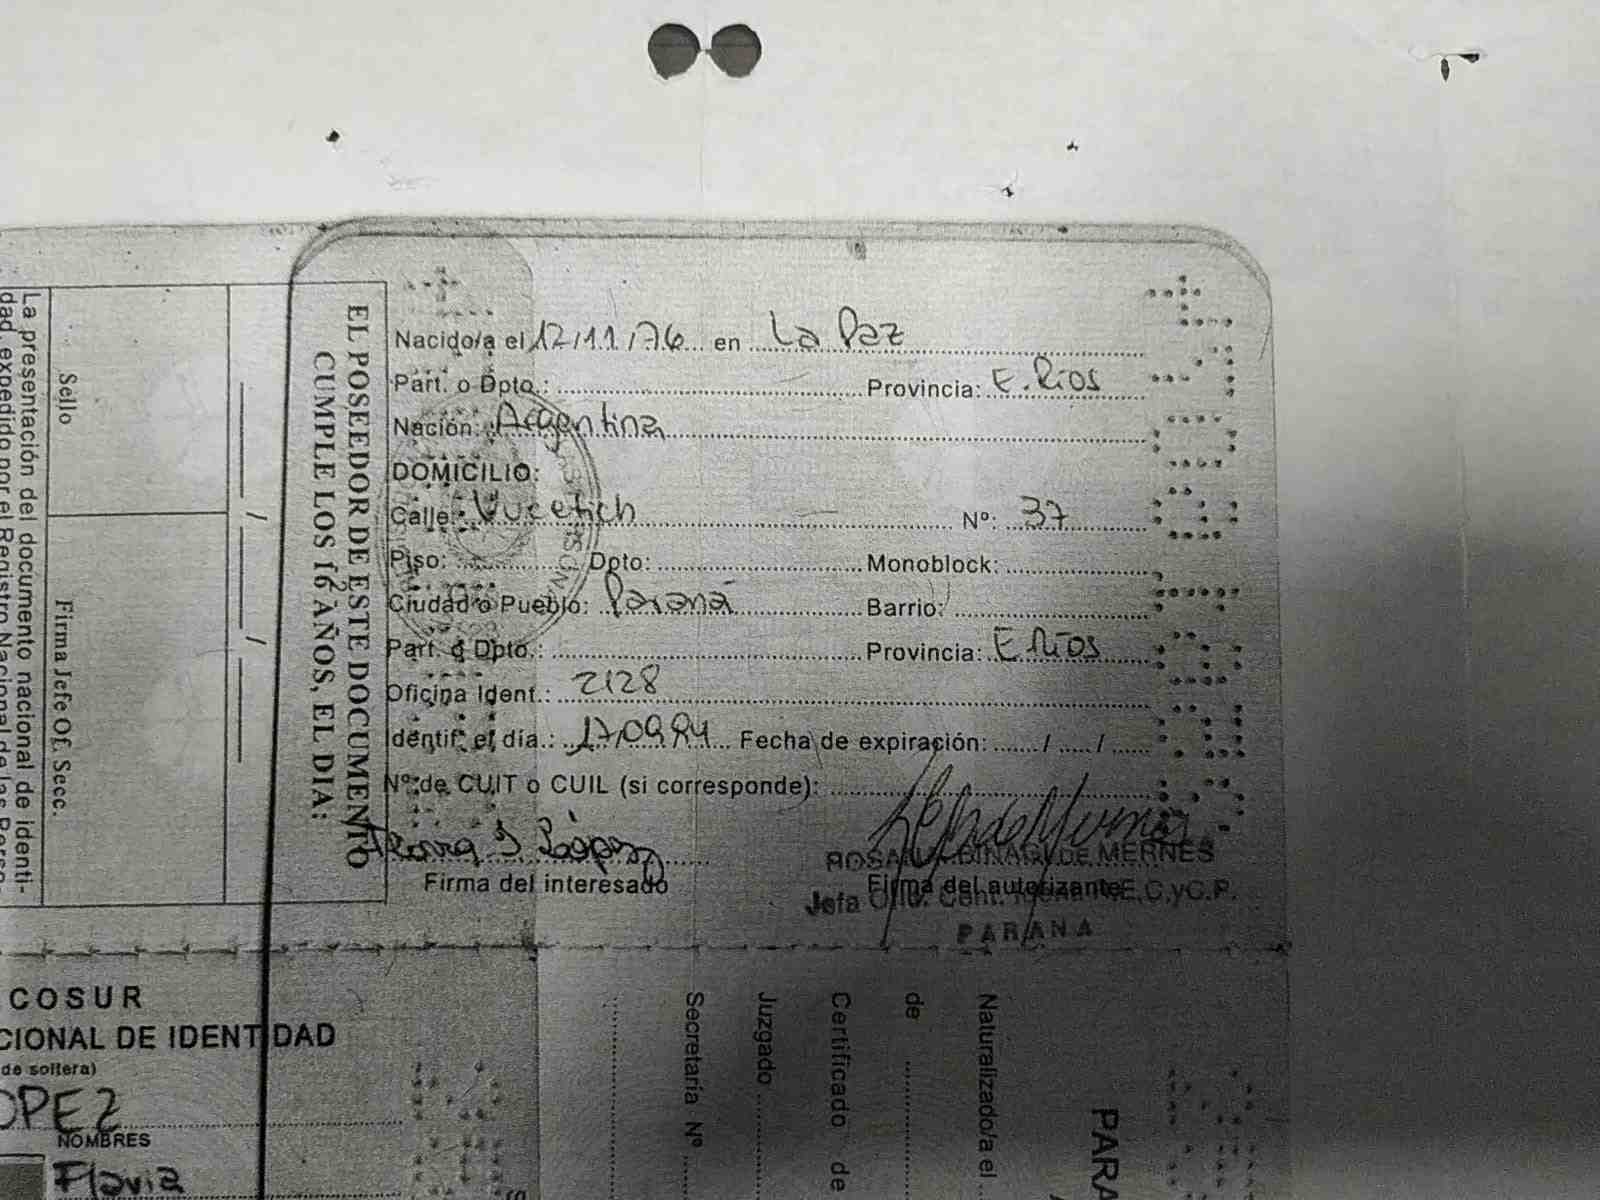 Nacido/a el 12/11/76 en La Paz
Part. o Dpto.: Provincia: E. Ríos
Nación: Argentina
DOMICILIO:
Calle: Vucetich Nº: 37
Piso: Dpto: Monoblock:
Ciudad o Pueblo: Paraná Barrio:
Part. o Dpto.: Provincia: E. Ríos
Oficina Ident.: 2128
Identif. el día.: Fecha de expiración: / /
Nº de CUIT o CUIL (si corresponde):
López
Firma del interesado Firma del autorizante
DE MERNES
Jefa E.C.yC.P.
PARANA
EL POSEEDOR DE ESTE DOCUMENTO
CUMPLE LOS 16 AÑOS, EL DIA:
/ /
Sello
Firma Jefe Of. Secc.
La presentación del documento nacional de identi-
dad, expedido por el Registro Nacional de las Perso-
COSUR
CIONAL DE IDENTIDAD
de soltera)
OPEZ
NOMBRES
Flavia
PARA
Naturalizado/a el
de
Certificado de
Juzgado
Secretaría Nº